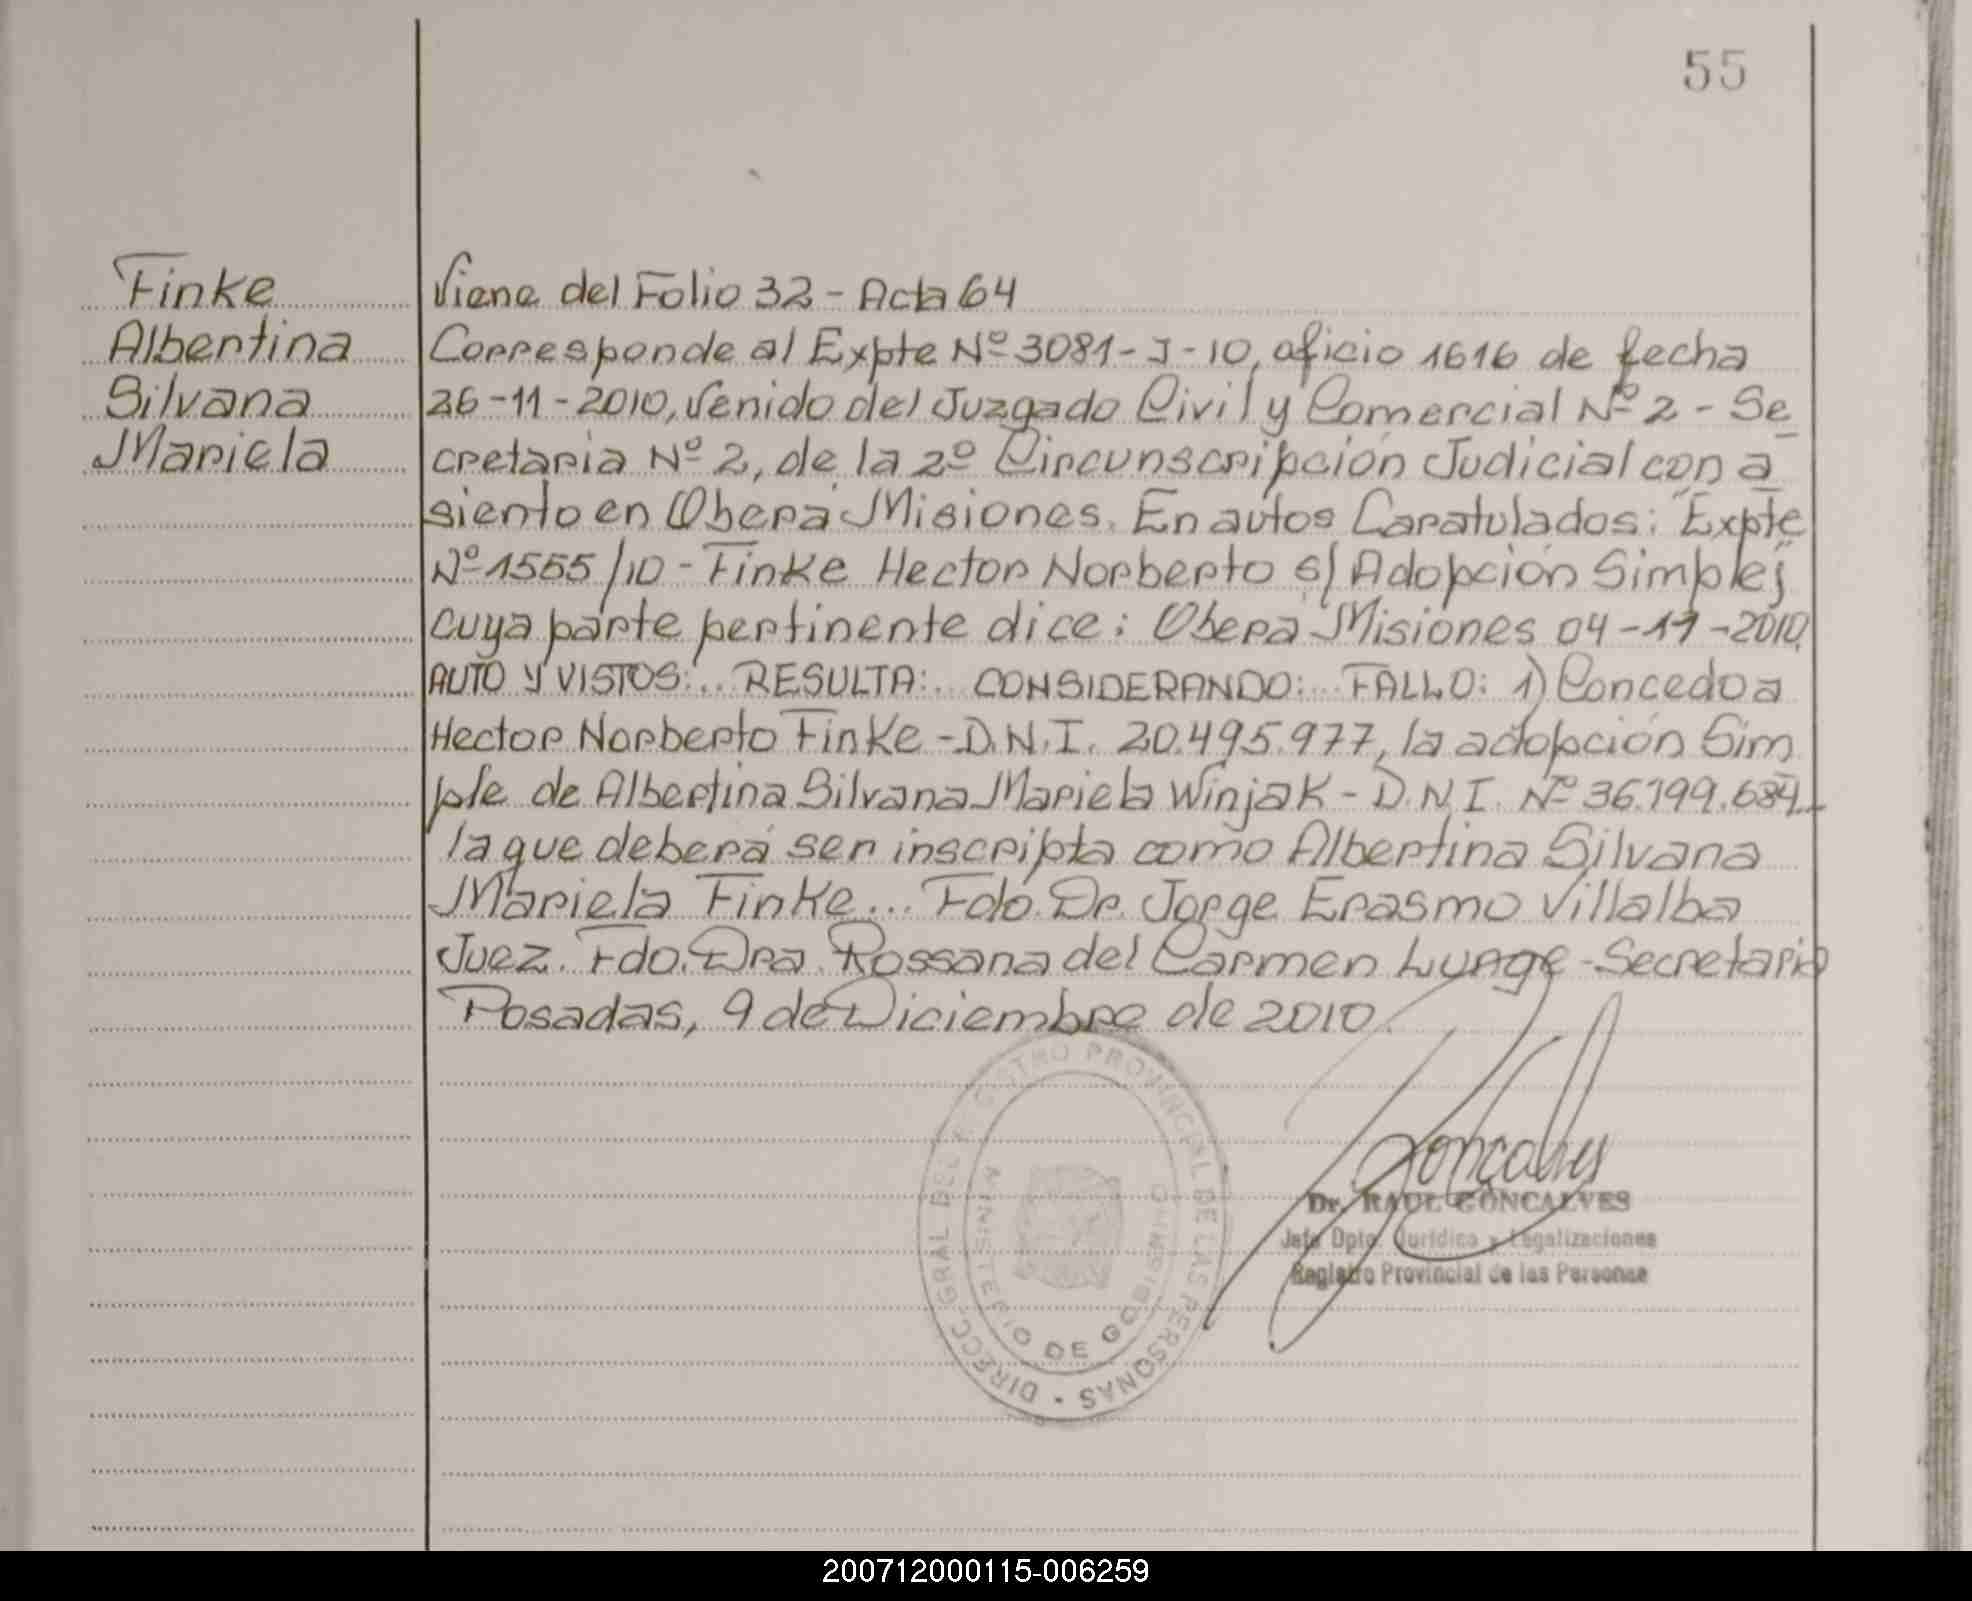 55
Finke
Albertina
Silvana
Mariela
Viene del Folio 32 - Acta 64
Corresponde al Expte Nº 3081 - J - 10, oficio 1616 de fecha
26 - 11 - 2010, venido del Juzgado Civil y Comercial Nº 2 - Se
cretaria Nº 2, de la 2º Circunscripción Judicial con a
siento en Oberá Misiones. En autos Caratulados: "Expte
Nº 1555/10 - Finke Hector Norberto s/ Adopción Simple"
cuya parte pertinente dice: Oberá Misiones 04 - 11 - 2010.
AUTO Y VISTOS:.. RESULTA:.. CONSIDERANDO:.. FALLO: 1) Concedo a
Hector Norberto Finke - D.N.I. 20.495.977, la adopción Sim
ple de Albertina Silvana Mariela Winjak - D.N.I. Nº 36.199.684
la que deberá ser inscripta como Albertina Silvana
Mariela Finke... Fdo. Dr. Jorge Erasmo Villalba
Juez. Fdo. Dra. Rossana del Carmen Lunge - Secretaria
Posadas, 9 de Diciembre de 2010.
DIRECC. GRAL DEL REGISTRO PROVINCIAL DE LAS PERSONAS -
MINISTERIO DE GOBIERNO
Goncalves
Dr. RAUL GONCALVES
Jefe Dpto. Jurídico y Legalizaciones
Registro Provincial de las Personas
200712000115-006259